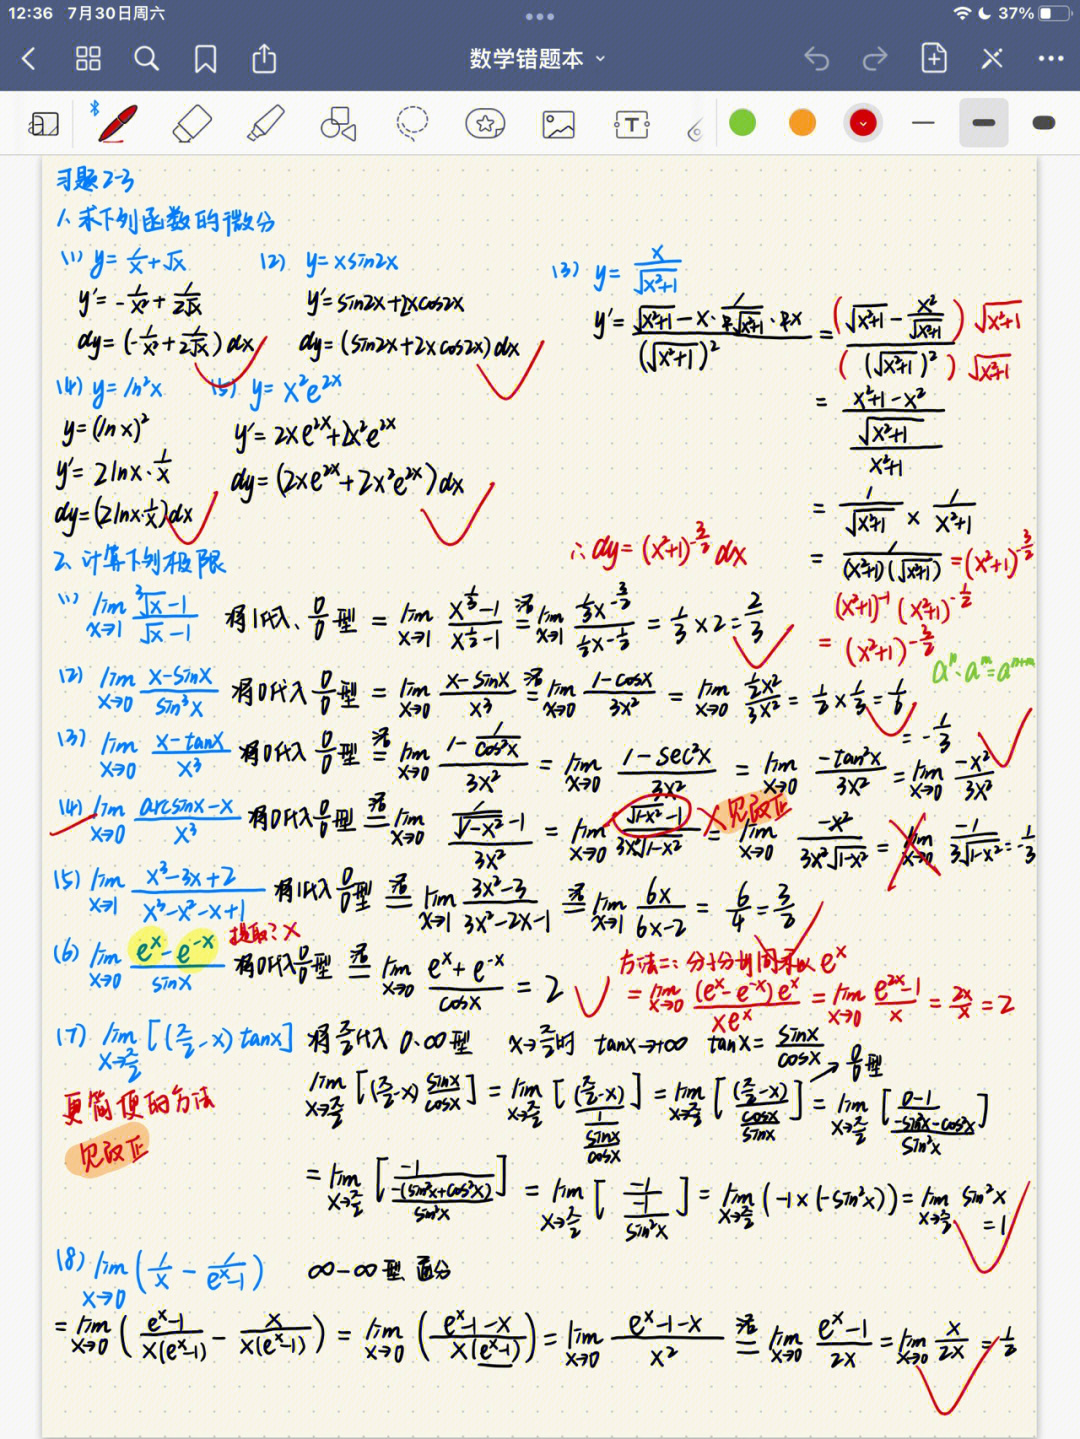 12:36 7月30日周六
37%
数学错题本
习题2-3
1、求下列函数的微分
(1) y = 1/x + √x (2) y = xsin2x (3) y = x/√(x²+1)
y' = -1/x² + 1/(2√x) y' = sin2x+2xcos2x y' = (√(x²+1) - x·1/(2√(x²+1))·2x)/(√(x²+1))² = (√(x²+1) - x²/√(x²+1)) √(x²+1) / (√(x²+1))² √(x²+1)
dy = (-1/x² + 1/(2√x))dx dy = (sin2x+2xcos2x)dx
(4) y = ln²x (5) y = x²e^(2x) = ((x²+1-x²)/√(x²+1))/(x²+1)
y = (lnx)² y' = 2xe^(2x)+2x²e^(2x)
y' = 2lnx·1/x dy = (2xe^(2x)+2x²e^(2x))dx
dy = (2lnx·1/x)dx = 1/√(x²+1) × 1/(x²+1)
∴ dy = (x²+1)^(-3/2) dx = 1/((x²+1)(√(x²+1))) = (x²+1)^(-3/2)
(x²+1)^(-1) (x²+1)^(-1/2)
= (x²+1)^(-3/2)
aⁿ·aᵐ=aⁿ⁺ᵐ
2、计算下列极限
(1) lim x→1 (∛x-1)/(√x-1) 将1代入、0/0型 = lim x→1 (x^(1/3)-1)/(x^(1/2)-1) 洛= lim x→1 (1/3)x^(-2/3)/(1/2)x^(-1/2) = 1/3×2 = 2/3
(2) lim x→0 (x-sinx)/sin³x 将0代入 0/0型 = lim x→0 (x-sinx)/x³ 洛= lim x→0 (1-cosx)/3x² = lim x→0 (½x²)/3x² = 1/2×1/3 = 1/6
(3) lim x→0 (x-tanx)/x³ 将0代入 0/0型 洛= lim x→0 (1-1/cos²x)/3x² = lim x→0 (1-sec²x)/3x² = lim x→0 -tan²x/3x² = lim x→0 -x²/3x² = -1/3
(4) lim x→0 (arcsinx-x)/x³ 将0代入 0/0型 洛= lim x→0 (1/√(1-x²)-1)/3x² = lim x→0 (√(1-x²)-1)/3x²√(1-x²) = lim x→0 -x²/3x²√(1-x²) = lim x→0 -1/3√(1-x²) = -1/3
见改正
(5) lim x→1 (x³-3x+2)/(x³-x²-x+1) 将1代入 0/0型 洛= lim x→1 (3x²-3)/(3x²-2x-1) 洛= lim x→1 6x/(6x-2) = 6/4 = 3/2
提取? ×
(6) lim x→0 (eˣ-e⁻ˣ)/sinx 将0代入0/0型 洛= lim x→0 (eˣ+e⁻ˣ)/cosx = 2
方法二:分子分母同乘以eˣ
= lim x→0 (eˣ-e⁻ˣ)eˣ/xeˣ = lim x→0 (e^(2x)-1)/x = 2x/x = 2
(7) lim x→π/2 [(π/2-x)tanx] 将π/2代入 0·∞型 x→π/2时 tanx→+∞ tanx = sinx/cosx
更简便的方法
见改正
lim x→π/2 [(π/2-x) sinx/cosx] = lim x→π/2 [(π/2-x)/(1/(sinx/cosx))] = lim x→π/2 [(π/2-x)/(cosx/sinx)] 0/0型 = lim x→π/2 [(0-1)/((-sin²x-cos²x)/sin²x)]
= lim x→π/2 [-1/(-(sin²x+cos²x)/sin²x)] = lim x→π/2 [-1/(-1/sin²x)] = lim x→π/2 (-1×(-sin²x)) = lim x→π/2 sin²x = 1
(8) lim x→0 (1/x - 1/(eˣ-1)) ∞-∞型 通分
= lim x→0 ((eˣ-1)/x(eˣ-1) - x/x(eˣ-1)) = lim x→0 ((eˣ-1-x)/x(eˣ-1)) = lim x→0 (eˣ-1-x)/x² 洛= lim x→0 (eˣ-1)/2x = lim x→0 x/2x = 1/2